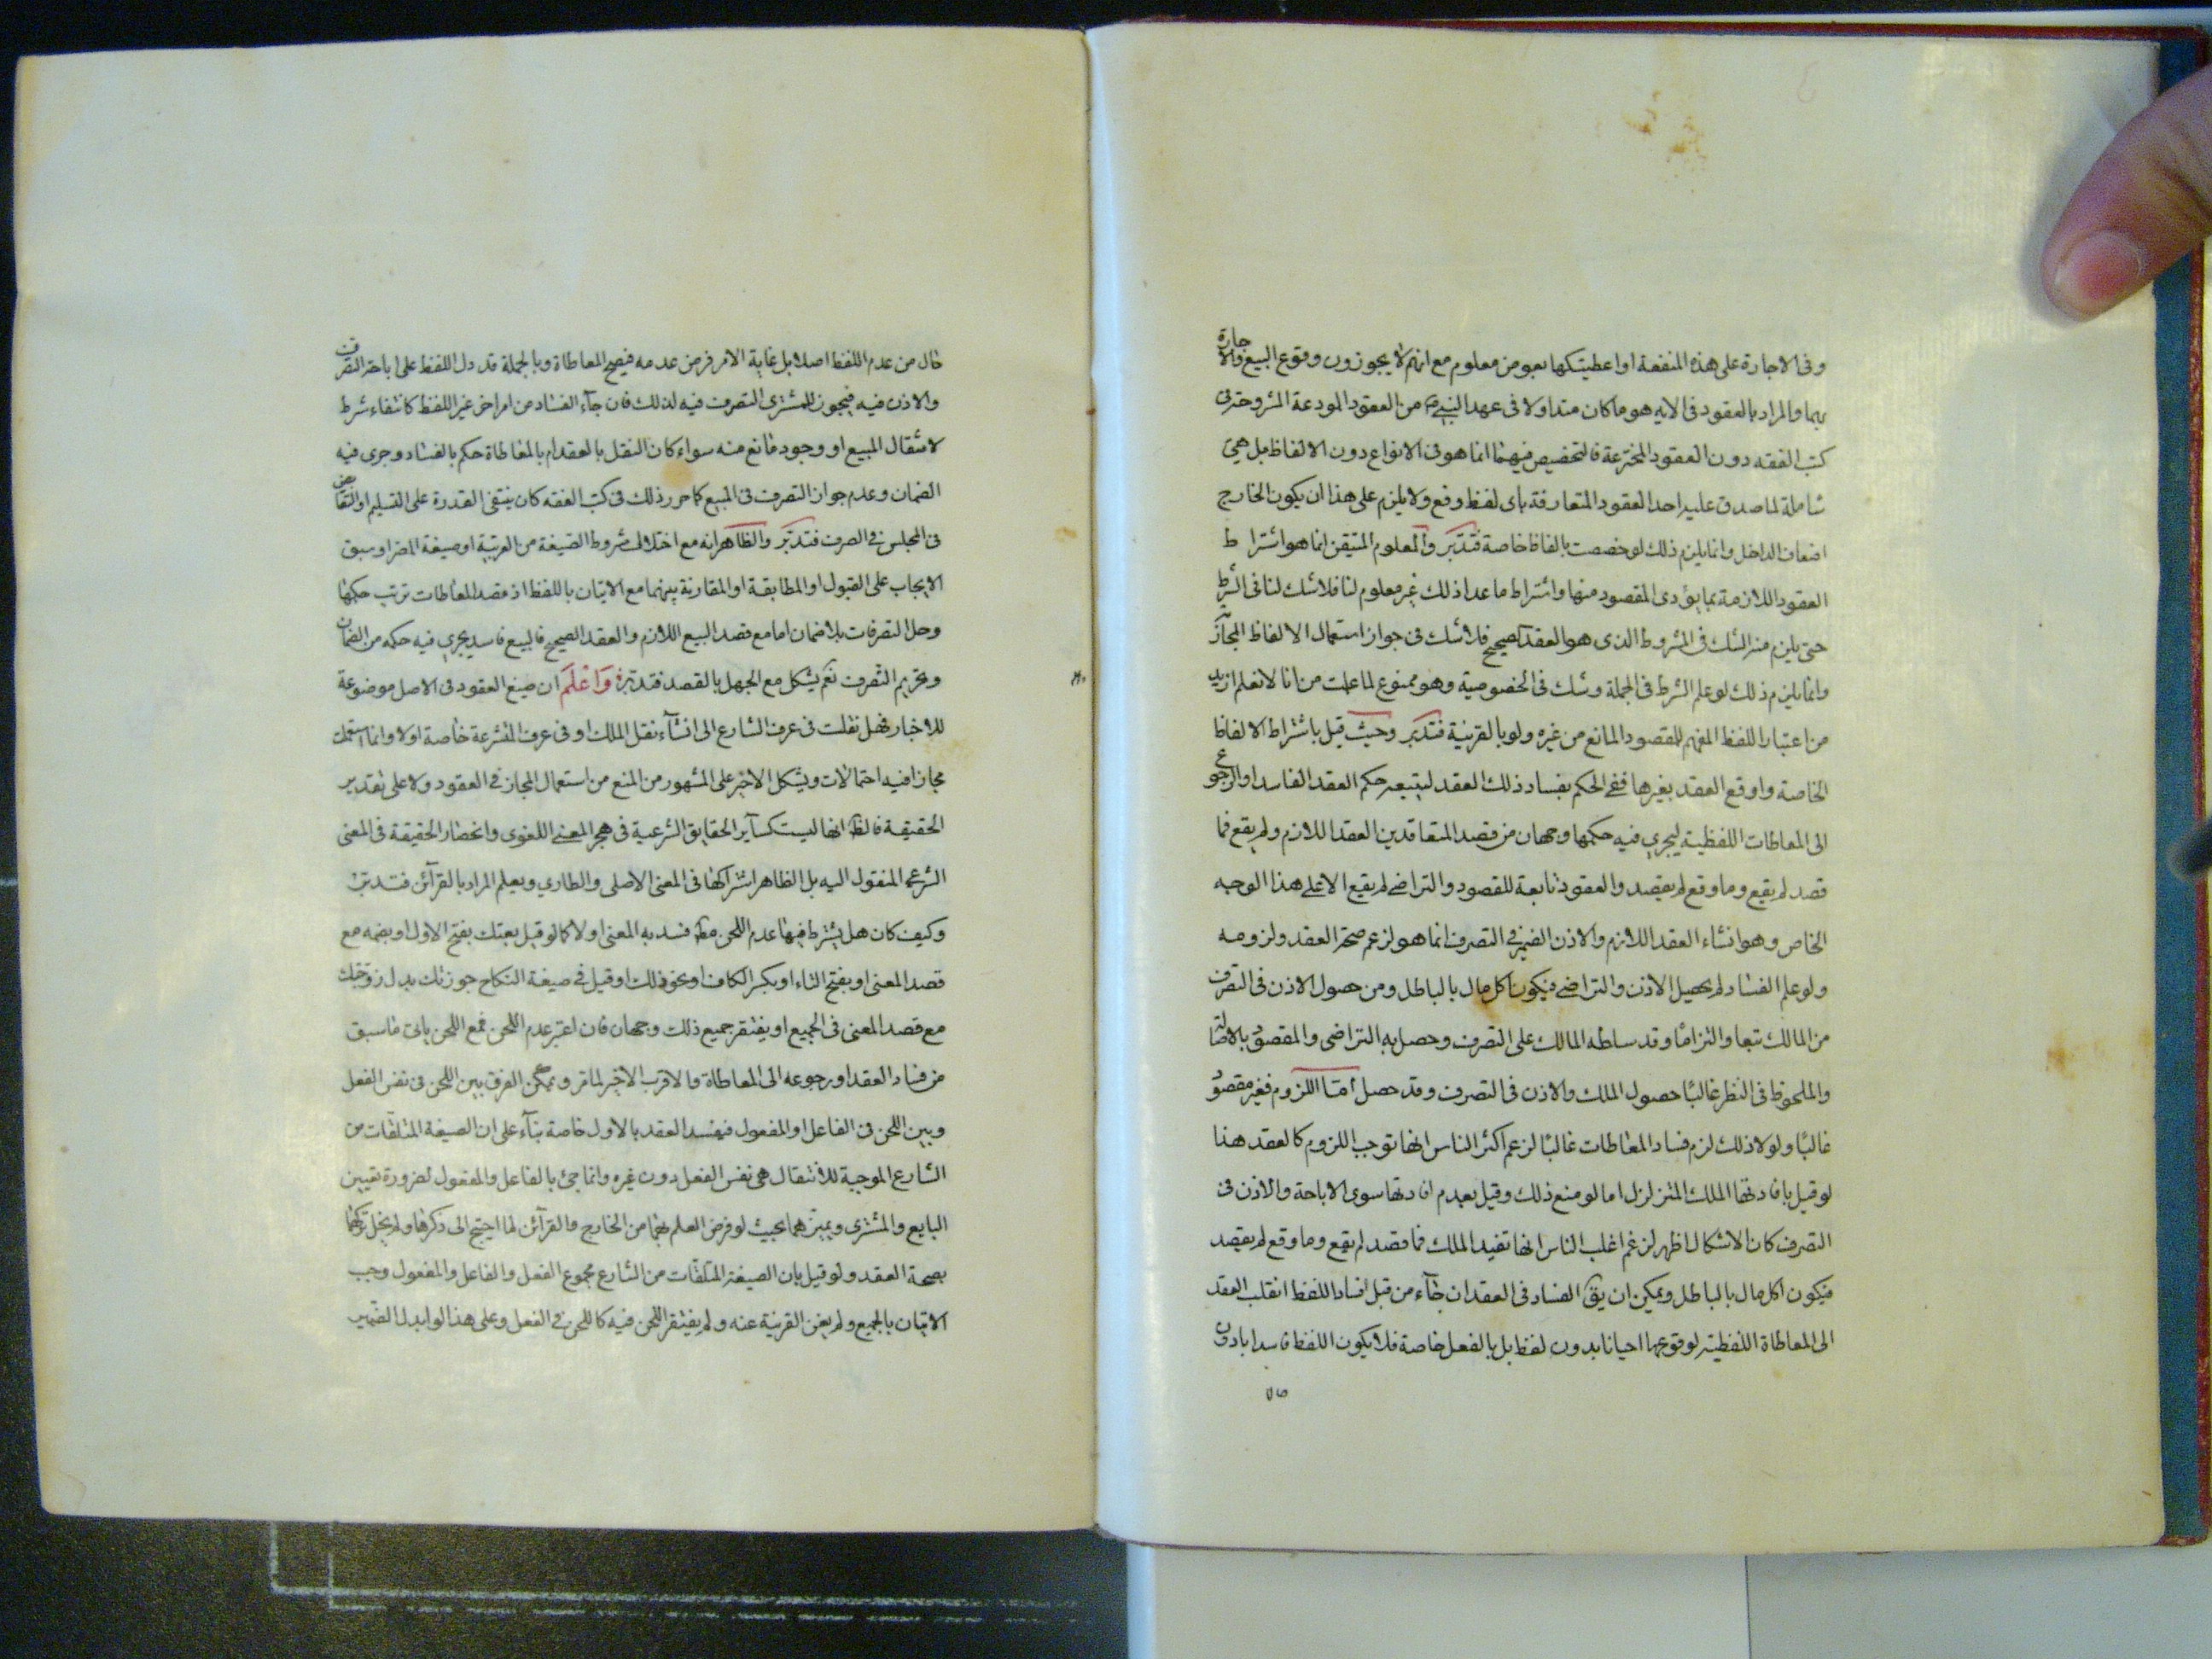 وفى الاجارة على هذه المنفعة او اعطيتكها بعوض معلوم مع انهم لا يجوزون وقوع البيع والاجارة
بهما والمراد بالعقود فى الايه هو ما كان متداولا فى عهد النبي من العقود المودعة المشروحة فى
كتب الفقه دون العقود المخترعة فالتخصيص فيهما انما هو فى الانواع دون الالفاظ بل هى
شاملة لما صدق عليه احد العقود المتعارفة باى لفظ وقع ولا يلزم على هذا ان يكون الخارج
اضعاف الداخل وانما يلزم ذلك لو خصصت بالفاظ خاصة فتدبر والمعلوم المتيقن انما هو اشتراط
العقود اللازمة بما يؤدى المقصود منها واشتراط ما عدا ذلك غير معلوم لنا فلا شك لنا فى الشرط
حتى يلزم منه الشك فى المشروط الذى هو العقد الصحيح فلا شك فى جواز استعمال الالفاظ المجاز
وانما يلزم ذلك لو علم الشرط فى الجملة وشك فى الخصوصية وهو ممنوع لما علمت من انا لا نعلم ازيد
من اعتبار اللفظ المفهم للمقصود المانع من غيره ولو بالقرينة فتدبر وحيث قيل باشتراط الالفاظ
الخاصة واوقع العقد بغيرها ففى الحكم بفساد ذلك العقد ليتبعه حكم العقد الفاسد او الرجوع
الى المعاطات اللفظية ليجرى فيه حكمها وجهان من قصد المتعاقدين العقد اللازم ولم يقع فما
قصد لم يقع وما وقع لم يقصد والعقود تابعة للقصود والتراضى لم يقع الا على هذا الوجه
الخاص وهو انشاء العقد اللازم والاذن الضمنى فى التصرف انما هو لزعم صحة العقد ولزومه
ولو علم الفساد لم يحصل الاذن والتراضى فيكون اكل مال بالباطل ومن حصول الاذن فى التصرف
من المالك تبعا والتزاما وقد سلطه المالك على التصرف وحصل به التراضى والمقصود بالاصالة
والملحوظ فى النظر غالبا حصول الملك والاذن فى التصرف وقد حصل اما اللزوم فغير مقصود
غالبا ولولا ذلك لزم فساد المعاطات غالبا لزعم اكثر الناس انها توجب اللزوم كالعقد هذا
لو قيل بافادتها الملك المتزلزل اما لو منع ذلك وقيل بعدم افادتها سوى الاباحة والاذن فى
التصرف كان الاشكال اظهر لزعم اغلب الناس انها تفيد الملك فما قصد لم يقع وما وقع لم يقصد
فيكون اكل مال بالباطل ويمكن ان يق الفساد فى العقد ان جاء من قبل افساد اللفظ انقلب العقد
الى المعاطاة اللفظية لوقوعها احيانا بدون لفظ بل بالفعل خاصة فلا يكون اللفظ فاسدا بادون
حال من عدم اللفظ اصلا بل غاية الامر فرض عدمه فيصح المعاطاة وبالجملة قد دل اللفظ على اباحة التصرف
والاذن فيه فيجوز للمشترى التصرف فيه لذلك فان جاء الفساد من امر اخر غير اللفظ كانتفاء شرط
لانتقال المبيع او وجود مانع منه سواء كان النقل بالعقد ام بالمعاطاة حكم بالفساد وجرى فيه
الضمان وعدم جواز التصرف فى المبيع كما حرر ذلك فى كتب الفقه كان ينتفى القدرة على التسليم او التقابض
فى المجلس فى الصرف فتدبر والظاهر انه مع اختلال شروط الصيغة من العربية او صيغة الماضى او سبق
الايجاب على القبول او المطابقة او المقارنة بينهما مع الاتيان باللفظ اذ قصد المعاطات ترتب حكمها
وحل التصرفات بلا ضمان اما مع قصد البيع اللازم والعقد الصحيح فالبيع فاسد يجرى فيه حكمه من الضمان
وتحريم التصرف نعم يشكل مع الجهل بالقصد فتدبره واعلم ان صيغ العقود فى الاصل موضوعة
للاخبار فهل نقلت فى عرف الشارع الى انشاء نقل الملك او فى عرف المتشرعة خاصة او لا وانما استعملت
مجازا فيه احتمالات ويشكل الاخير على المشهور من المنع من استعمال المجاز فى العقود ولا على تقدير
الحقيقة فالظ انها ليست كساير الحقايق الشرعية فى هجر المعنى اللغوى وانحصار الحقيقة فى المعنى
الشرعى المنقول اليه بل الظاهر اشتراكها فى المعنى الاصلى والطارى ويعلم المراد بالقرآئن فتدبر
وكيف كان هل يشترط فيها عدم اللحن مط فسد به المعنى او لا كما لو قيل بعتك بفتح الاول او بضمه مع
قصد المعنى او بفتح التاء او بكسر الكاف او نحو ذلك او قيل فى صيغة النكاح جوزتك بدل زوجتك
مع قصد المعنى فى الجميع او يغتفر جميع ذلك وجهان فان اعتبر عدم اللحن فمع اللحن ياتى ما سبق
من فساد العقد او رجوعه الى المعاطاة والاقرب الاخير لما مر ويمكن الفرق بين اللحن فى نفس الفعل
وبين اللحن فى الفاعل او المفعول فيفسد العقد بالاول خاصة بناء على ان الصيغة المتلقات من
الشارع الموجبة للانتقال هى نفس الفعل دون غيره وانما جئ بالفاعل والمفعول لضرورة تعيين
البايع والمشترى ويميزهما بحيث لو فرض العلم بهما من الخارج والقرآئن لما احتيج الى ذكرها ولم يخل تركهما
بصحة العقد ولو قيل بان الصيغة المتلقات من الشارع مجموع الفعل والفاعل والمفعول وجب
الاتيان بالجميع ولم يغن القرينة عنه ولم يغتفر اللحن فيه كاللحن فى الفعل وعلى هذا لو ابدل الضمير